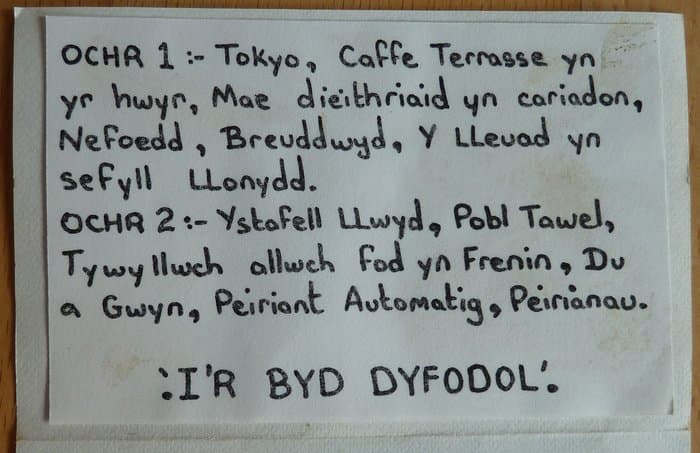 OCHR 1 :- Tokyo, Caffe Terrasse yn
yr hwyr, Mae dieithriaid yn cariadon,
Nefoedd, Breuddwyd, Y LLeuad yn
sefyll LLonydd.
OCHR 2 :- Ystafell LLwyd, Pobl Tawel,
Tywyllwch allwch fod yn Frenin, Du
a Gwyn, Peiriant Automatig, Peirianau.
'I'R BYD DYFODOL'.